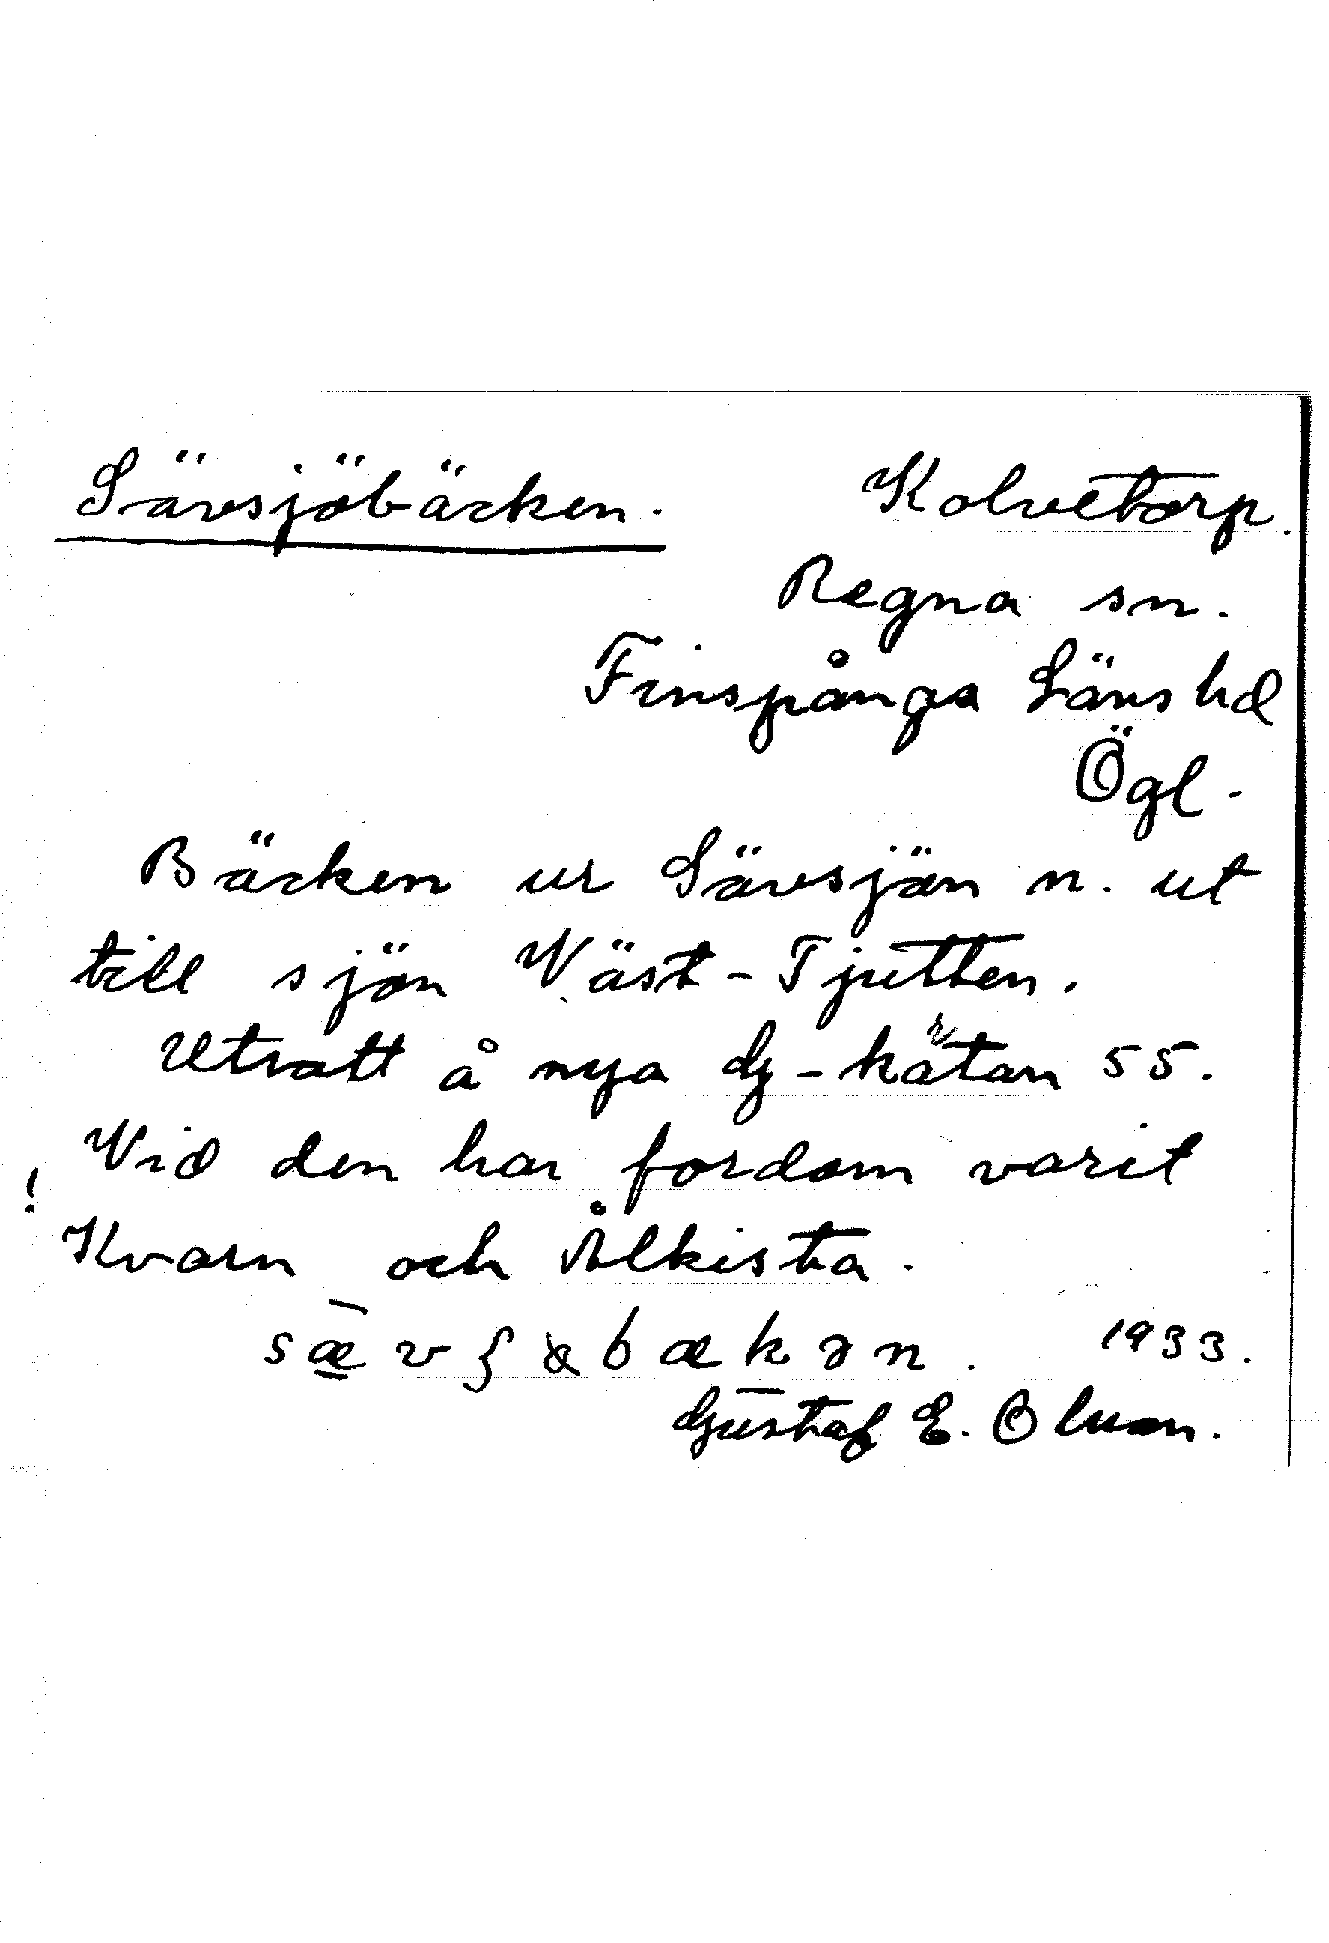 Sävsjöbäcken. Kolvetorp.
Regna sn.
Finspånga Läns hd
Ögl.
Bäcken ur Sävsjön n. ut
till sjön Väst-Tjutten.
Utsatt å nya G-kätan 55.
! Vid den har fordom varit
Kvarn och Ålkista.
sævʃøbækən. 1933.
Gustaf E.